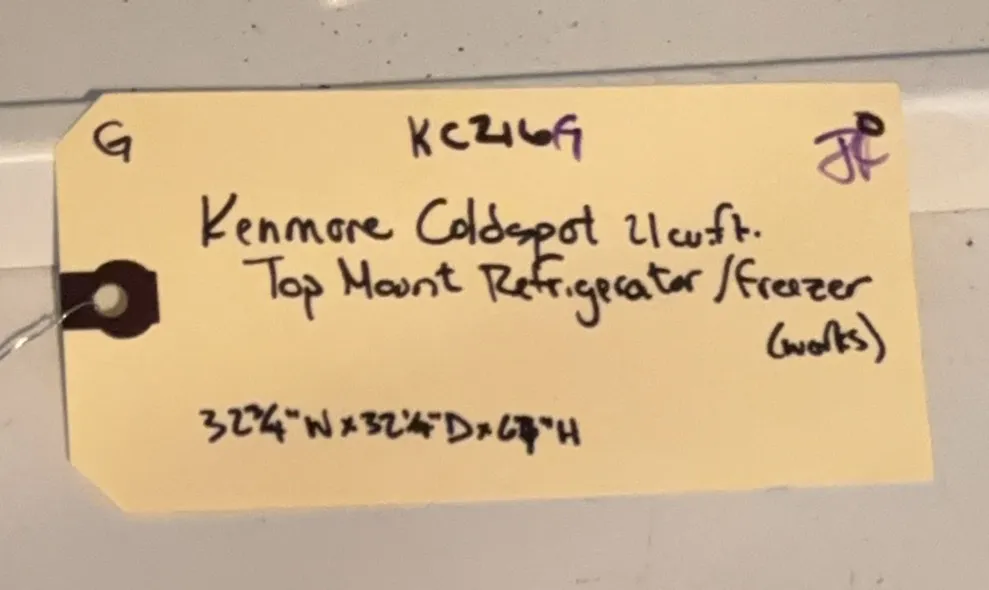 G KC216G
Kenmore Coldspot 21 cu ft.
Top Mount Refrigerator/freezer
(works)
32¾" W x 32¼" D x